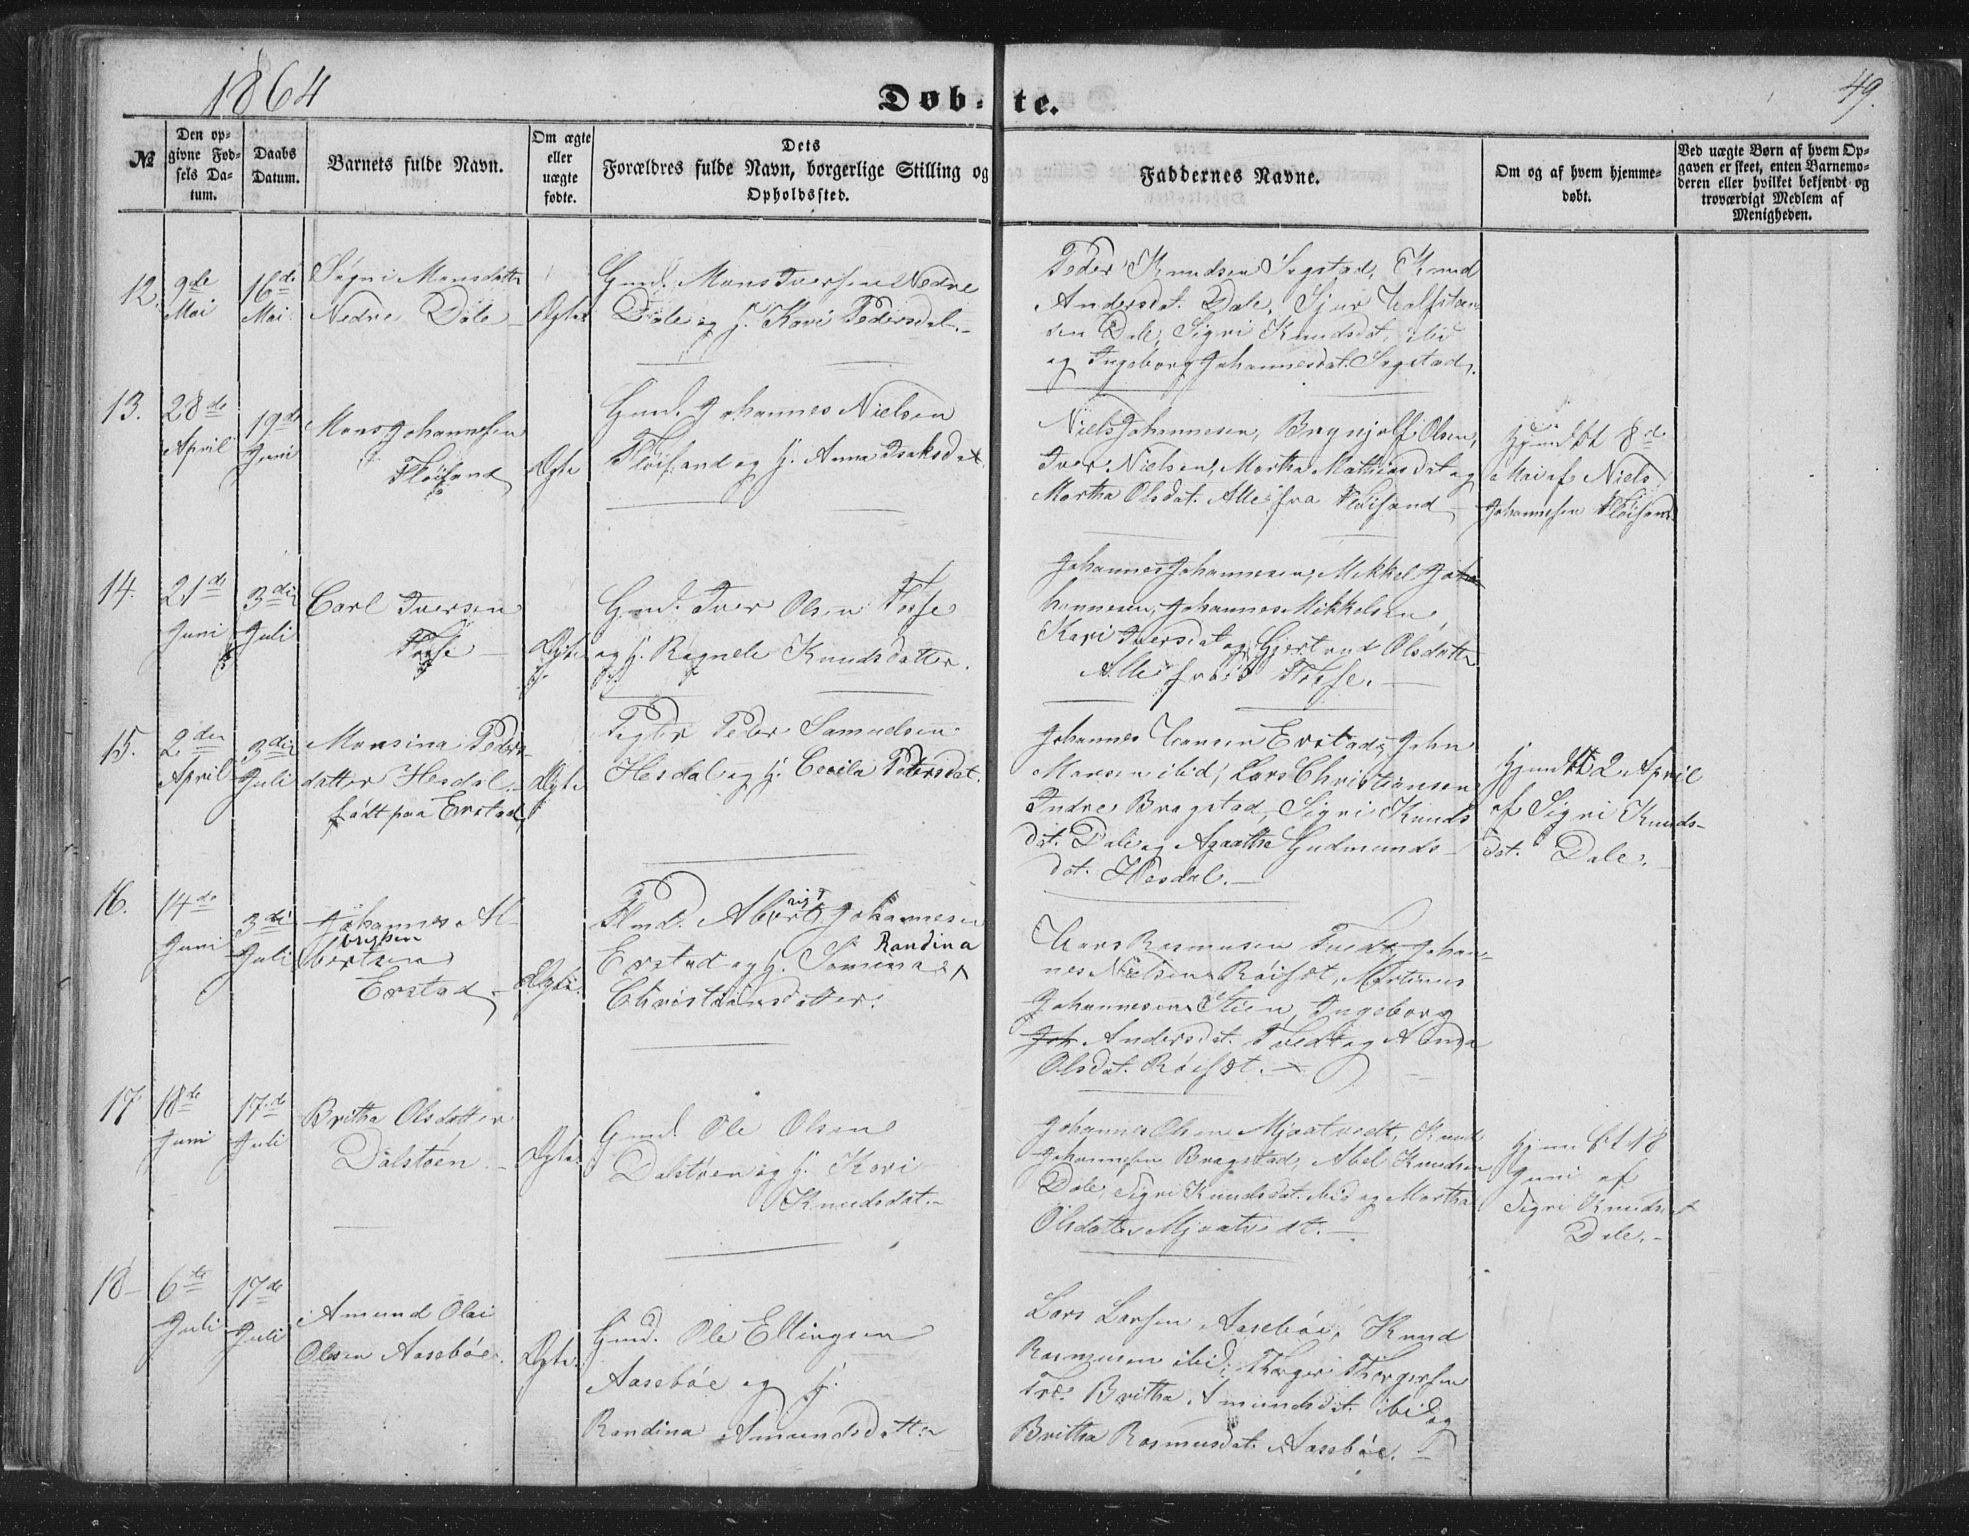 1864
Døbte.
49.
№
Den opgivne Fødsels Datum.
Daabs Datum.
Barnets fulde Navn.
Om ægte eller uægte fødte.
Dets Forældres fulde Navn, borgerlige Stilling og Opholdssted.
Faddernes Navne.
Om og af hvem hjemmedøbt.
Ved uægte Børn af hvem Opgaven er skeet, enten Barnemoderen eller hvilket bekjendt og troværdigt Medlem af Menigheden.
12.
9de
Mai
16de
Mai
Signi Monsdatter
Nedre Dale
Ægte
Gmd. Mons Iversen Nedre
Dale og H. Kari Pedersdat.
Peder Knudsen Sogstad, Knud
Andersdat. Dale, Sjur
sen Dale, Sigri Knudsdt. ibid
og Ingeborg Johannesdat. Sogstad.
13.
28de
April
19de
Juni
Mons Johannesen
Fløisand
Ægte
Gmd. Johannes Nielsen
Fløisand og H. Anna Isaksdat.
Niels Johannesen, Brynjulf Olsen,
Iver Nielsen, Martha Mathiasdat og
Martha Olsdat. Alle fra Fløisand
Hjemdbt 8d
Mai af Niels
Johannesen Fløisand
14.
21de
Juni
3die
Juli
Carl Iversen
Fosse
Ægte
Gmd. Iver Olsen Fosse
og H. Ragnele Knudsdatter.
Johannes Johannesen, Mikkel Jo
hannesen, Johannes Mikkelsen,
Kari Iversdat og Gjertrud Olsdatter
Alle fra Fosse.
15.
2den
April
3die
Juli
Monsina Peders-
datter Hesdal
født paa Erstad
Ægte
Pegter Peder Samuelsen
Hesdal og H. Cecila Petersdat.
Johannes Hansen Erstad, John
Monsen ibid, Lars Christiansen
Indre Bragstad, Sigri Knuds
dat. Dale og Agathe Gudmunds-
dat. Hesdal.
Hjemdbt 2 April
af Sigri Knuds-
dat. Dale.
16.
14de
Juni
3die
Juli
Johannes Al-
brigtsen
bertsen
Erstad
Ægte
Johannesen
Randina
Erstad og H.
Christiansdatter.
Hans Rasmusen Tvedt, Johan-
nes Nielsen Røisæt, Martinus
Johannesen Steen, Ingeborg
Joh Andersdat. Tvedt og Anna
Olsdat. Røisæt.
17
18de
Juni
17de
Juli
Britha Olsdatter
Dalstøen
Ægte
Gmd. Ole Olsen
Dalstøen og H. Kari
Knudsdat.
Johannes Olsen Mjaatvedt, Knud
Johannesen Bragstad, Abel Knudsen
Dale, Sigri Knudsdat. ibid og Martha
Olsdatter Mjaatvedt.
Hjemdbt 18
Juni af
Sigri Knudsdat
Dale.
18
6te
Juli
17de
Juli
Amund Olai
Olsen Aasebøe.
Ægte.
Gmd. Ole Ellingsen
Aasebøe og H.
Randina Amundsdatter
Lars Larsen Aasebøe, Knud
Rasmusen ibid, Thorger Thorgersen
Britha Amundsdt. ibid og
Britha Rasmusdat. Aasebøe.